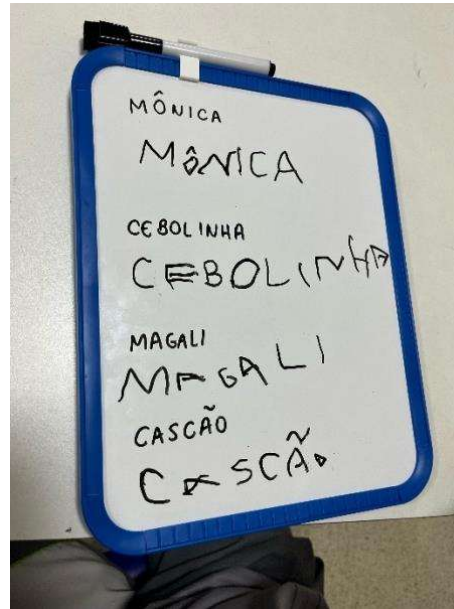 MÔNICA
MÔNICA
CEBOLINHA
CEBOLINHA
MAGALI
MAGALI
CASCÃO
CASCÃO